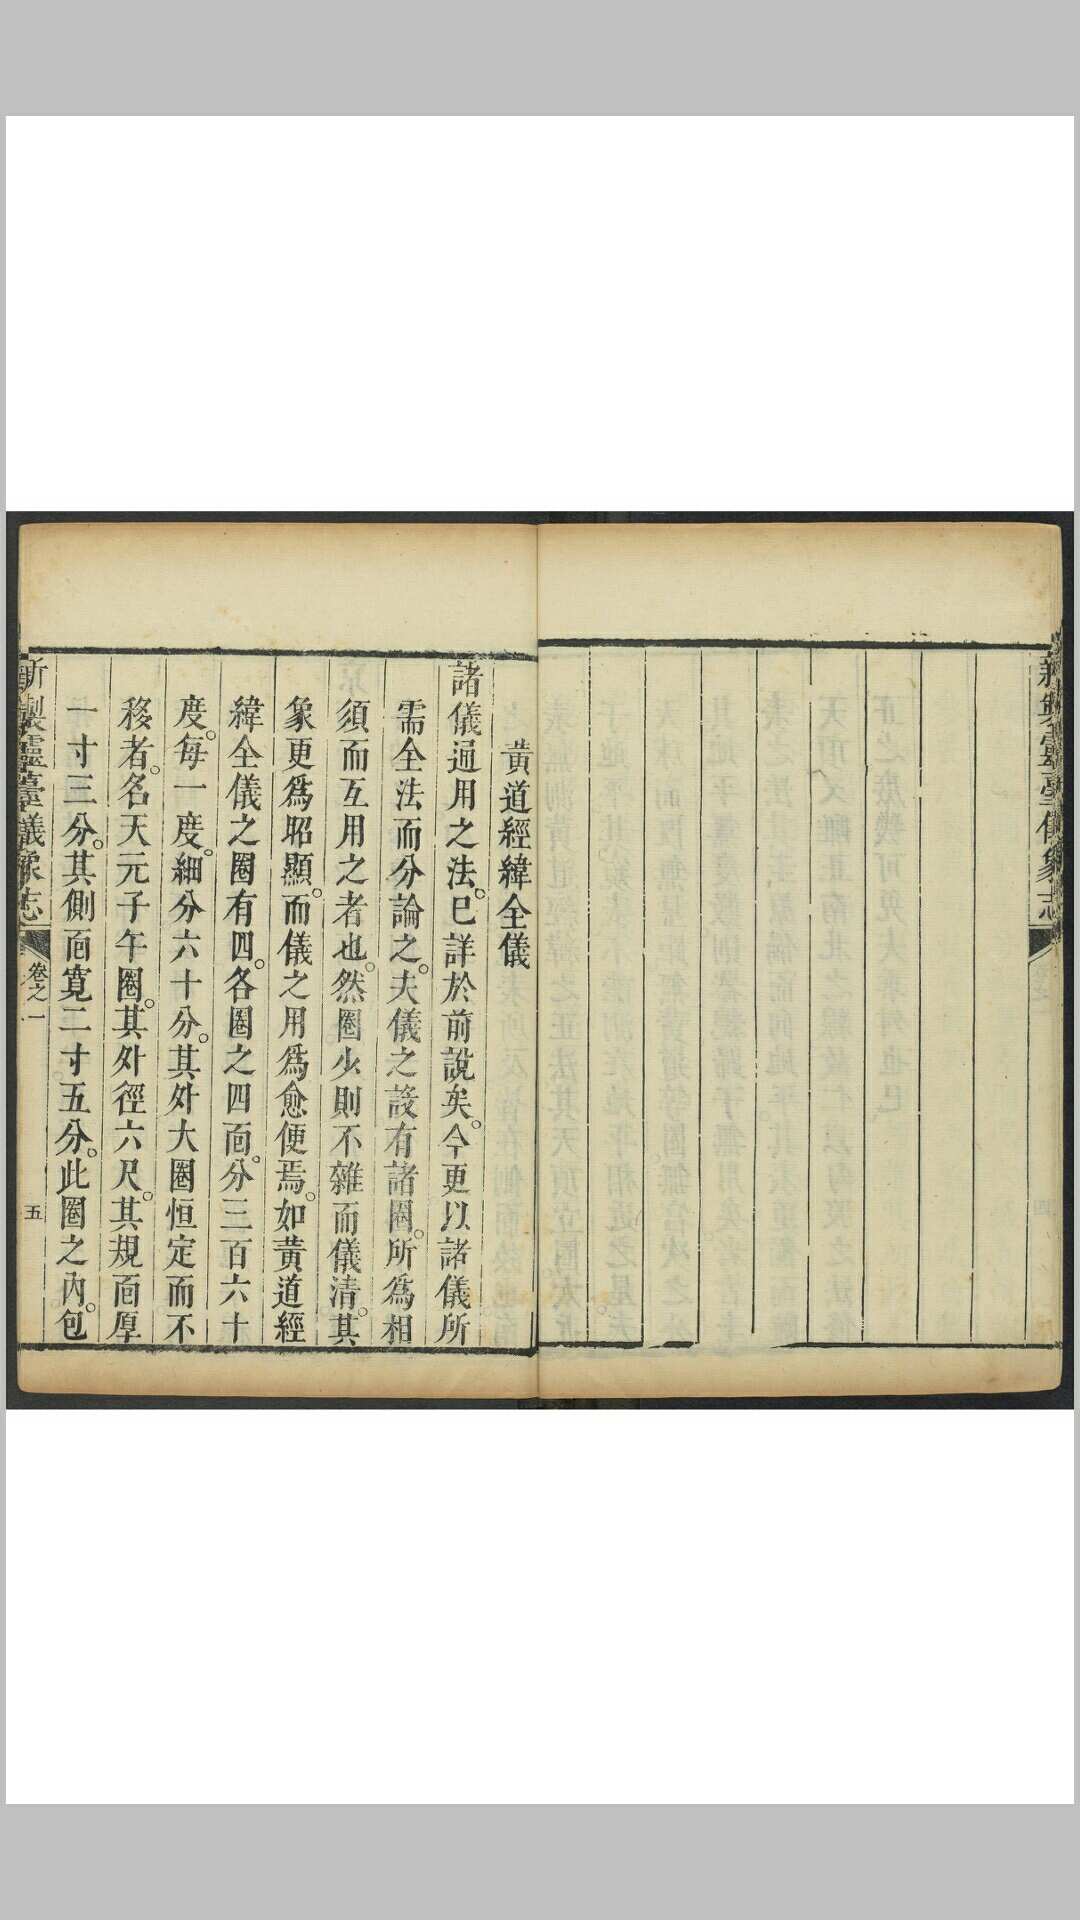 新製靈臺儀象志
黃道經緯全儀
諸儀通用之法。已詳於前說矣。今更以諸儀所
需全法而分論之。夫儀之設有諸圈。所爲相
須而互用之者也。然圈少則不雜而儀清。其
象更爲昭顯。而儀之用爲愈便焉。如黃道經
緯全儀之圈有四。各圈之四面。分三百六十
度。每一度。細分六十分。其外大圈恒定而不
移者。名天元子午圈。其外徑六尺。其規面厚
一寸三分。其側面寬二寸五分。此圈之內。包
新製靈臺儀象志
卷之一
五